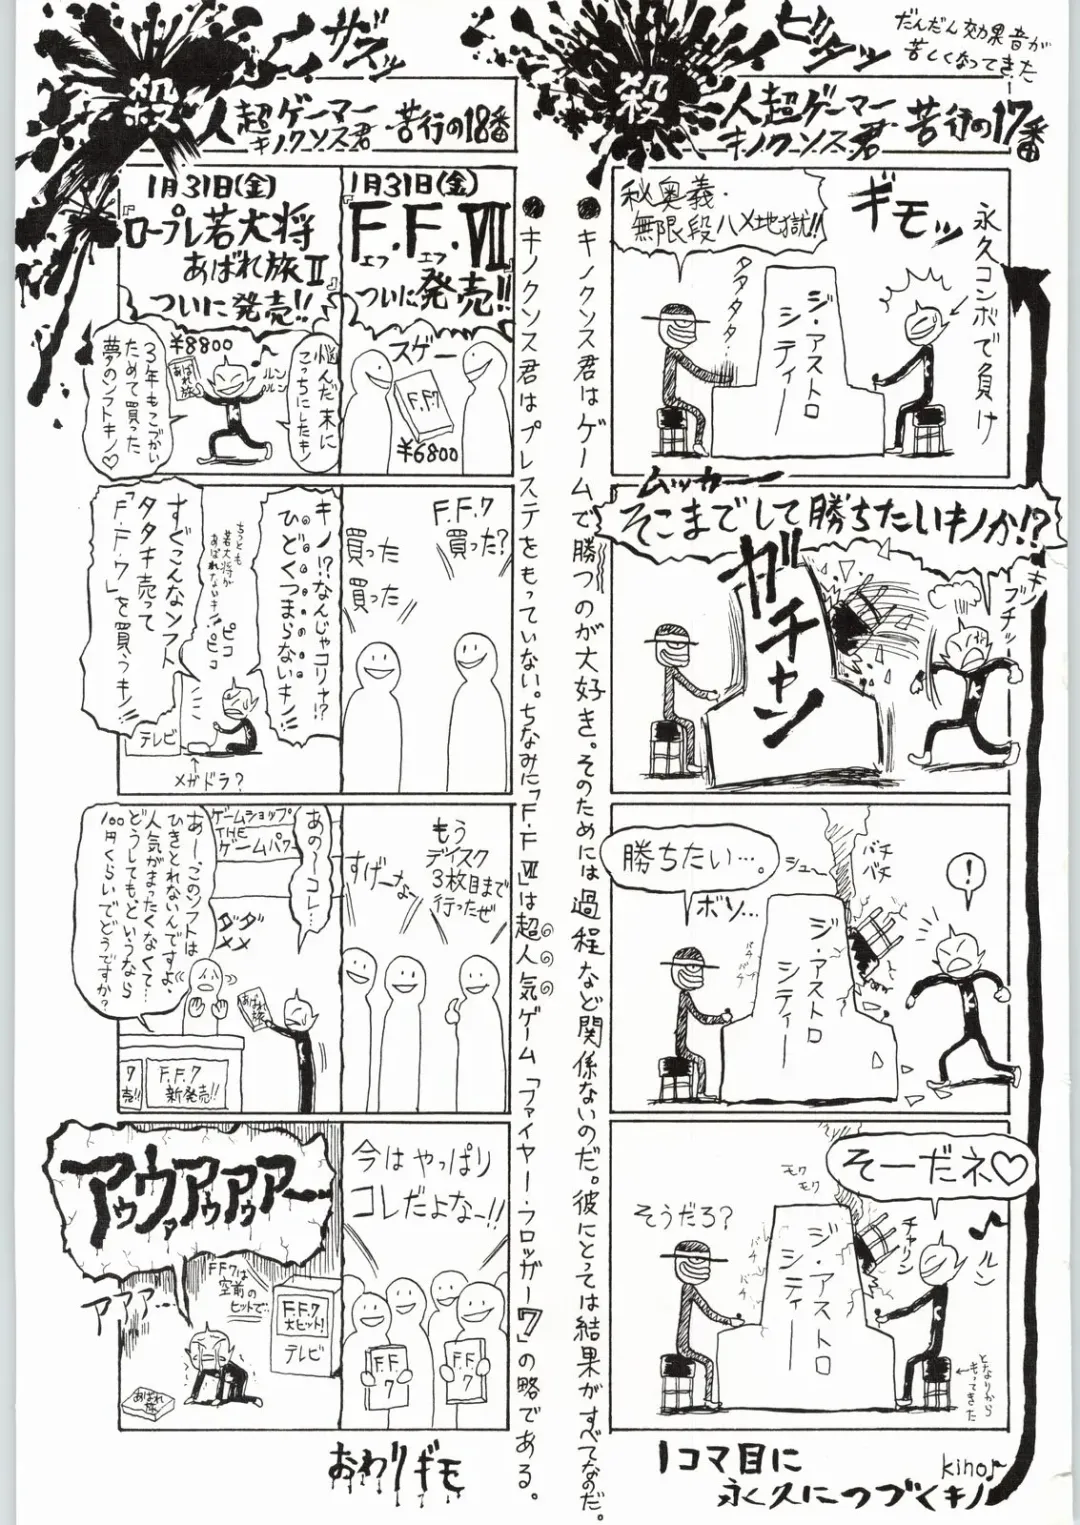 だんだん効果音が
苦しくなってきた
ビタッ
殺人超ゲーマー
キノクンス君
苦行の17番
永久コンボで負け
ギモッ
秘奥義・
無限段ハメ地獄!!
タタタタ・・
ジ・アストロ
シティー
ムッカー
そこまでして勝ちたいキノか!?
ガチャン
ブチッ
キノ
勝ちたい…。
ボソ…
シュ〜
バチ
バチ
バチ
バチ
！
ジ・アストロ
シティー
そーだネ♡
そうだろ?
モワ
モワ
バチ
バチ
チャリン
ルン
ジ・アストロ
シティー
となりから
もってきた
1コマ目に
永久につづくキノ
kino
●キノクンス君はゲームで勝つのが大好き。そのためには過程など関係ないのだ。彼にとっては結果がすべてなのだ。
ザスッ
殺人超ゲーマー
キノクンス君
苦行の18番
●キノクンス君はプレステをもっていない。ちなみに「F.F.Ⅶ」は超人気ゲーム「ファイヤー・フロッガー7」の略である。
1月31日(金)
『F.F.Ⅶ』
エフ エフ
ついに発売!!
スゲー
F.F.7
¥6800
1月31日(金)
『ロープレ若大将
あばれ旅Ⅱ』
ついに発売!!
¥8800
あばれ
旅
ルン
ルン
悩んだ末に
こっちにしたキノ
3年もこづかい
ためて買った
夢のソフトキノ♡
F.F.7
買った?
買った
買った
キノ!?なんじゃコリァ!?
ひどくつまらないキノ!!
ちっとも
若大将が
あばれないキノ!
ピコ
ピコ
すぐこんなソフト
タタキ売って
「F.F.7」を買うキノ!!
テレビ
メガドラ?
もう
ディスク
3枚目まで
行ったぜ
すげーなー
ゲームショップ
THE
ゲームパワー
あの〜コレ…
ダダ
メメ
あー、このソフトは
ひきとれないんですよ、
人気がまったくなくて…
どうしてもというなら
100円くらいでどうですか?
あばれ
旅
7
売!!
F.F.7
新発売!!
今はやっぱり
コレだよなー!!
F.F.
7
F.F.
7
アゥウァアゥアゥァー
アアア…
F.F.7は
空前の
ヒットで…
F.F.7
大ヒット!
テレビ
あばれ
旅
おわりギモ